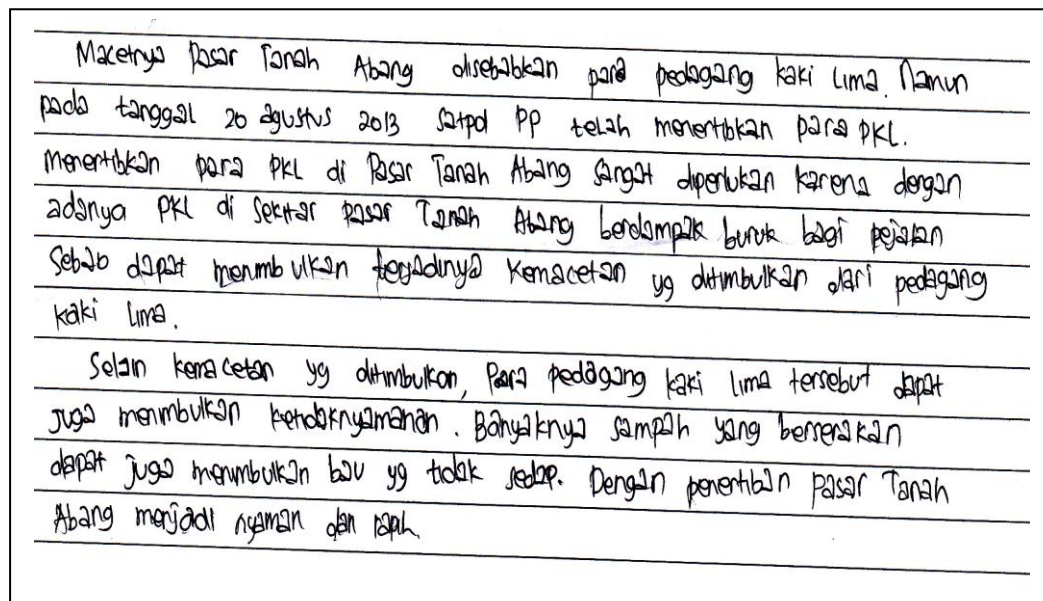 Macetnya Pasar Tanah Abang disebabkan para pedagang kaki lima. Namun
pada tanggal 20 agustus 2013 Satpol PP telah menertibkan para PKL.
Menertibkan para PKL di Pasar Tanah Abang sangat diperlukan karena dengan
adanya PKL di sekitar pasar Tanah Abang berdampak buruk bagi pejalan
Sebab dapat menimbulkan terjadinya kemacetan yg ditimbulkan dari pedagang
kaki lima.
Selain kemacetan yg ditimbulkan, Para pedagang kaki lima tersebut dapat
juga menimbulkan ketidaknyamanan. Banyaknya sampah yang berserakan
dapat juga menimbulkan bau yg tidak sedap. Dengan penertiban pasar Tanah
Abang menjadi nyaman dan rapih.